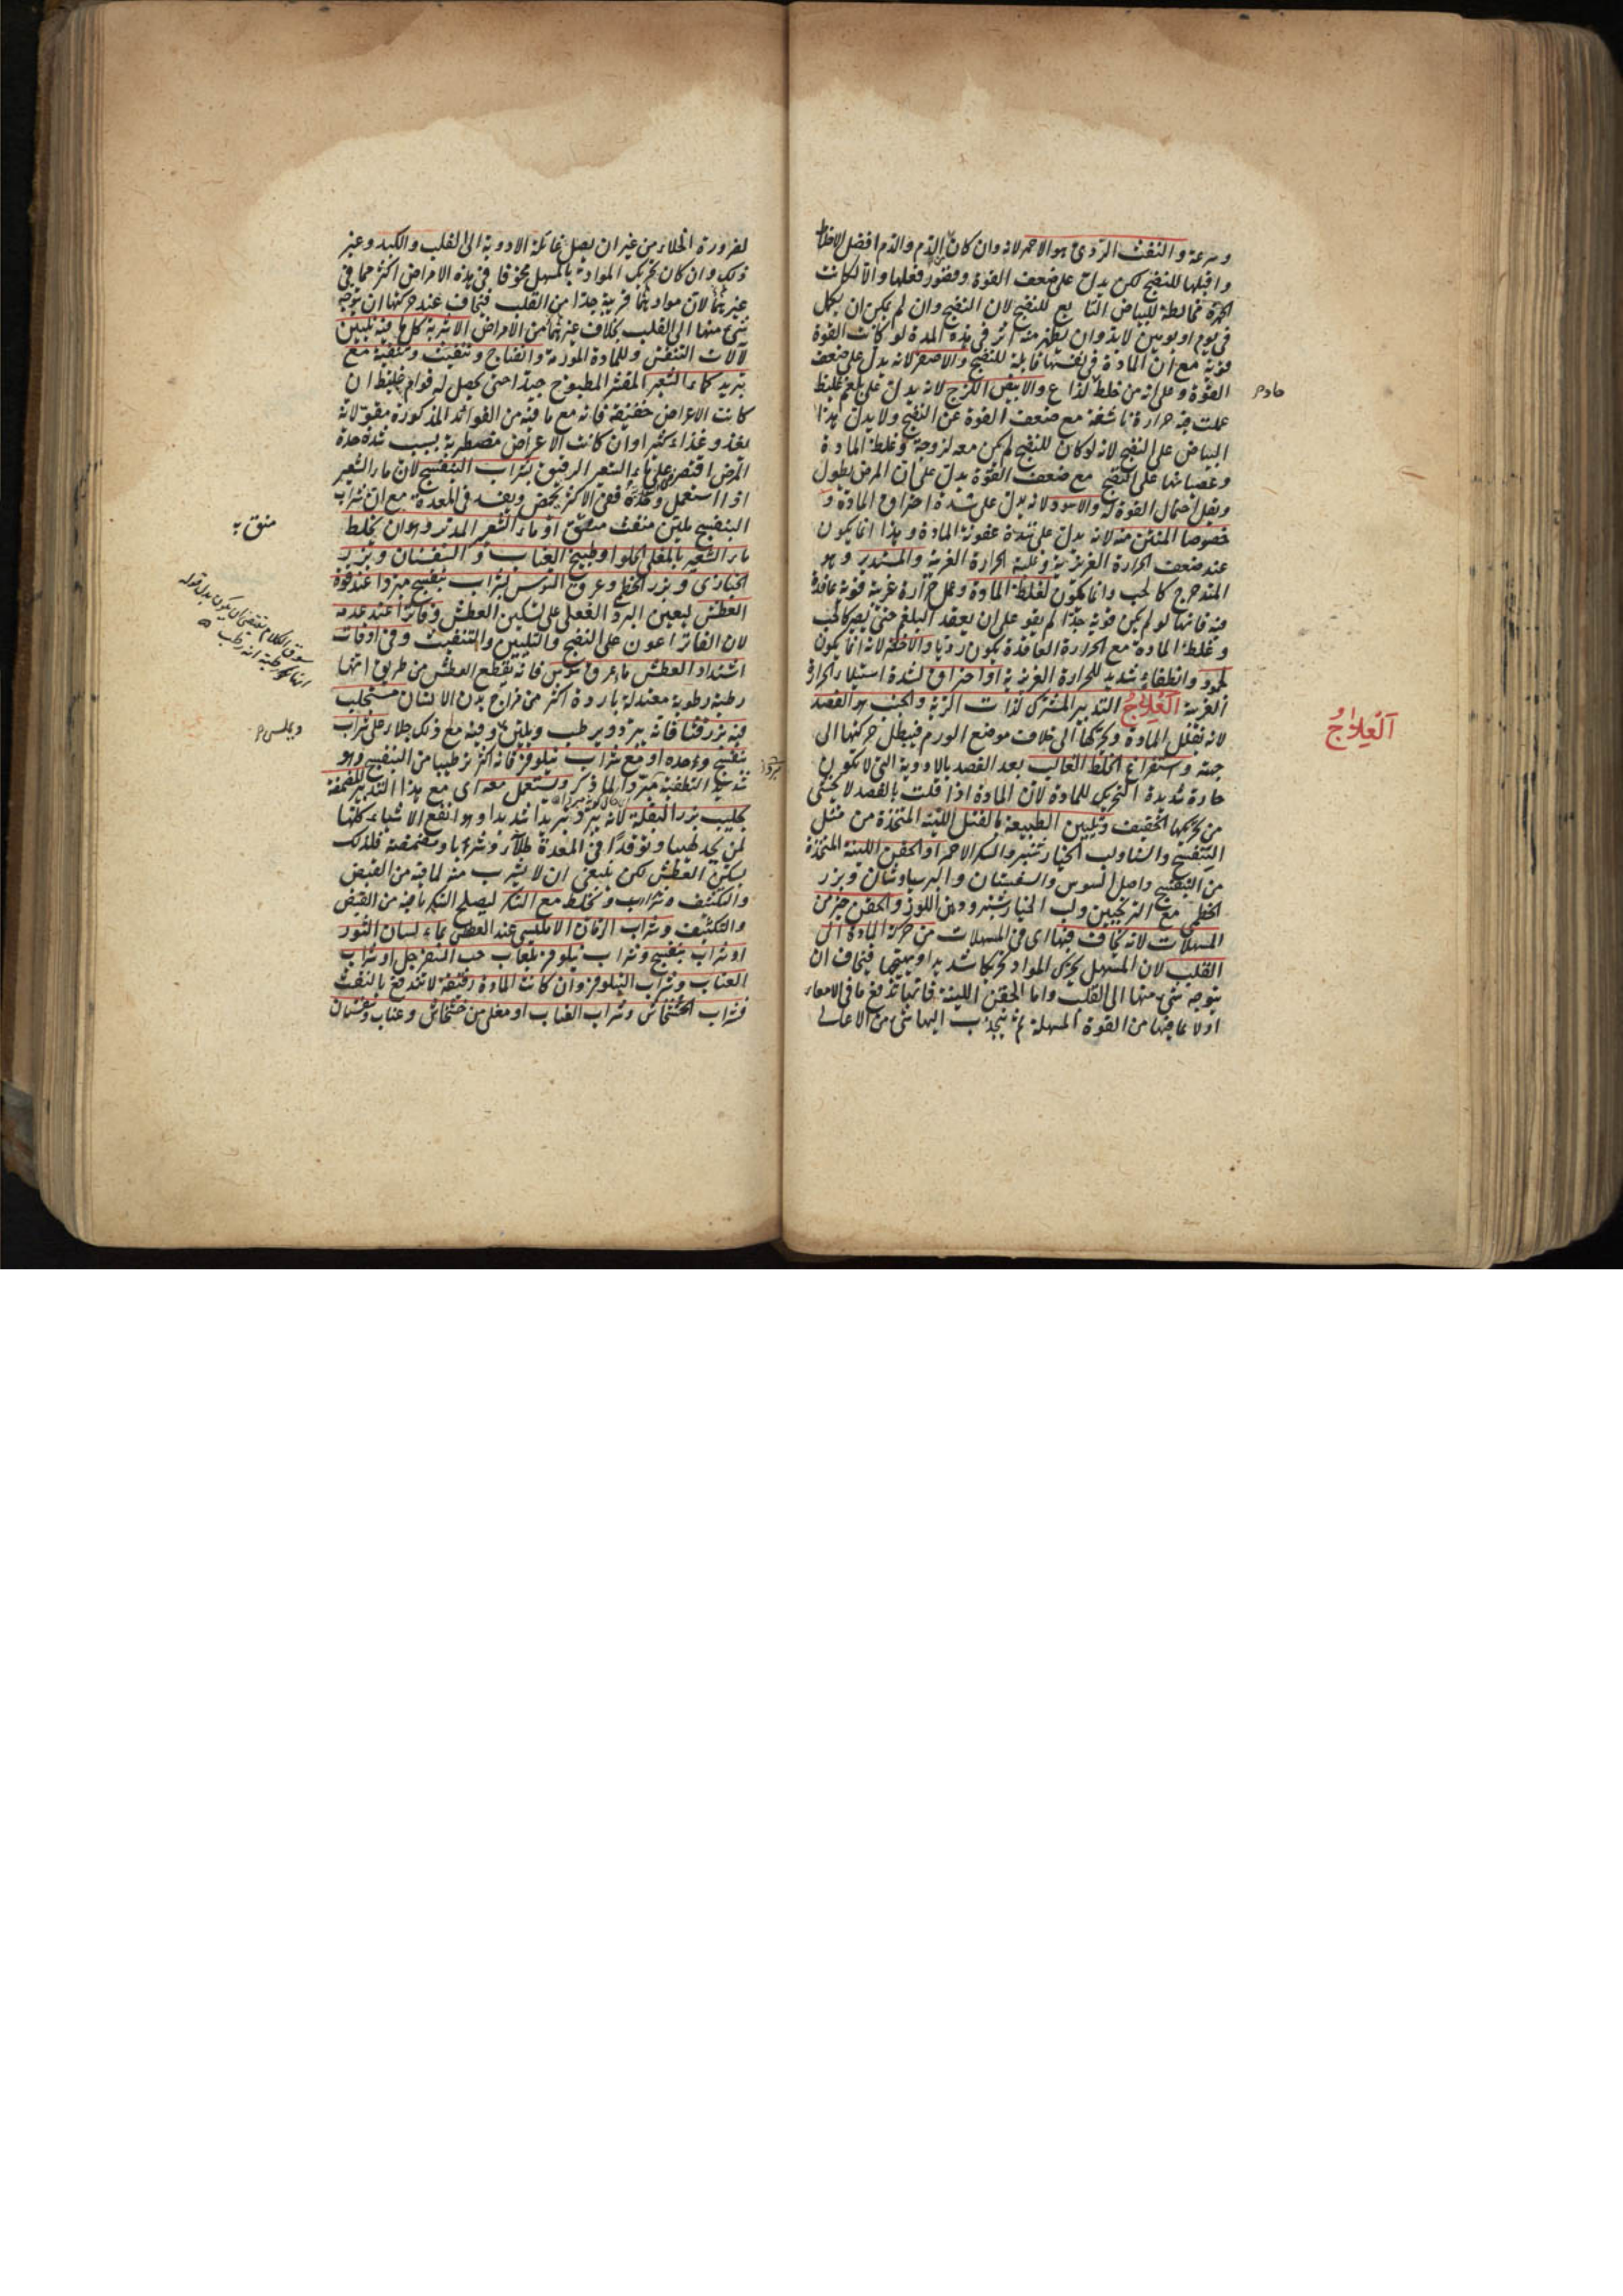 وسرعة والنفث الردئ هو الاحمر لانه وان كان الدم والدم افضل الاخلاط
واقبلها للنضج لكن يدل على ضعف القوة وفتور فعلها والا لكانت
الحمرة مخالطة للبياض التابع للنضج لان النضج وان لم يكن ان يكمل
فى يوم او يومين لابد وان يظهر منه اثر فى هذه المدة لو كانت القوة
قوية مع ان المادة فى نفسها قابلة للنضج والاصفر لانه يدل على ضعف
القوة وعلى انه من خلط لذاع والابيض اللزج لانه يدل على بلغم غليظ
حاد
عملت فيه حرارة ناشفة مع ضعف القوة عن النضج ولا يدل هذا
البياض على النضج لانه لو كان للنضج لم يكن معه لزوجة وغلظ المادة
وعصيانها على النضج مع ضعف القوة يدل على ان المرض يطول
ويقل احتمال القوة له والاسود لانه يدل على شدة احتراق المادة و
خصوصا المنتن منه لانه يدل على شدة عفونة المادة وهذا انما يكون
عند ضعف الحرارة الغريزية وغلبة الحرارة الغريبة والمستدير وهو
المتدحرج كالحب وانما يكون لغلظ المادة وعمل حرارة غريبة قوية عاقدة
فيه فانها لو لم يكن قوية جدا لم يقو على ان يعقد البلغم حتى يصير كالحب
وغلظ المادة مع الحرارة العاقدة يكون رديا والاخضر لانه انما يكون
لجمود وانطفاء شديد للحرارة الغريزية او احتراق لشدة استيلاء الحرارة
الغريبة العلاج التدبير المشترك لذات الرئة والجنب هو الفصد
العلاج
لانه تقلل المادة وتحركها الى خلاف موضع الورم فيبطل حركتها الى
جهته واستفراغ الخلط الغالب بعد الفصد بالادوية التى لا تكون
حارة شديدة التحريك للمادة لان المادة اذا قلت بالفصد لا يخشى
من تحريكها الخفيف وتليين الطبيعة بالفتل اللينة المتخذة من مثل
البنفسج ولب الخيارشنبر والسكر الاحمر او الحقن اللينة المتخذة
من البنفسج واصل السوس والسفستان والبرسياوشان وبزر
الخطمى مع الترنجبين ولب الخيارشنبر ودهن اللوز والحقن خير من
المسهلات لانه يخاف فيها اى فى المسهلات من حركة المادة الى
القلب لان المسهل يحرك المواد تحريكا شديدا ويهيجها فيخاف ان
يتوجه شئ منها الى القلب واما الحقن اللينة فانها تدفع ما فى الامعاء
اولا بما فيها من القوة المسهلة ثم ينجذب اليها شئ من الاعالى
لضرورة الخلاء من غير ان يصل غائلة الادوية الى القلب والكبد وغير
ذلك وان كان تحريك المواد بالمسهل مخوفا فى هذه الامراض اكثر مما فى
غيرها لان موادها قريبة جدا من القلب فيخاف عند حركتها ان يتوجه
شئ منها الى القلب بخلاف غيرها من الامراض الاشربة كل ما فيه تليين
لآلات التنفس وللمادة المورمة وانضاج وتنفيث وتنقية مع
تبريد كماء الشعير المقشر المطبوخ جيدا حتى يحصل له قوام غليظ ان
كانت الاعراض خفيفة فانه مع ما فيه من الفوائد المذكورة مقو لانه
يغذو غذاء كثيرا وان كانت الاعراض مضطربة بسبب شدة حدة
المرض اقتصر على ماء الشعير الرقيق بشراب البنفسج لان ماء الشعير
اذا استعمل وحده ففى الاكثر يحمض ويفسد فى المعدة مع ان شراب
البنفسج ملين منفث او ماء الشعير المدبر وهو ان يخلط
منق به
ماء الشعير بالمغلى الحلو او طبيخ العناب والسفستان وبزر
الخبازى وبزر الخطمى وعرق السوس بشراب بنفسج مبردا عند قوة
العطش ليعين البرد الفعلى على تسكين العطش وفاترا عند عدمه
لان الفاتر اعون على النضج والتليين والتنفيث وفى اوقات
سوق الكلام يقتضى ان يكون بدل قوله
انها رطبة انه رطب
اشتداد العطش ماء عرق سوس فانه يقطع العطش من طريق انها
رطبة رطوبة معتدلة باردة اكثر من مزاج بدن الانسان مستحلب
فيه بزر قثا فانه يبرد ويرطب ويلين وفيه مع ذلك جلاء على شراب
بنفسج وحده او مع شراب نيلوفر فانه اكثر ترطيبا من البنفسج وهو
شديد التطفية مبردا لما ذكر ويستعمل معه اى مع هذا التدبير المضمضة
بحليب بزر البقلة لانه يبرد تبريدا شديدا وهو انفع الاشياء كلها
لمن يجد لهيبا وتوقدا فى المعدة طلاء وشربا ومضمضة فلذلك
يسكن العطش لكن ينبغى ان لا يشرب منه لما فيه من القبض
والتكثيف وشراب ويخلط مع السكر ليصلح السكر ما فيه من القبض
والتكثيف وشراب الرمان الامليسى عند العطش بماء لسان الثور
او شراب بنفسج وشراب نيلوفر بلعاب حب السفرجل او شراب
العناب وشراب النيلوفر وان كانت المادة رقيقة لا تندفع بالنفث
فشراب الخشخاش وشراب العناب او مغلى من خشخاش وعناب وسفستان